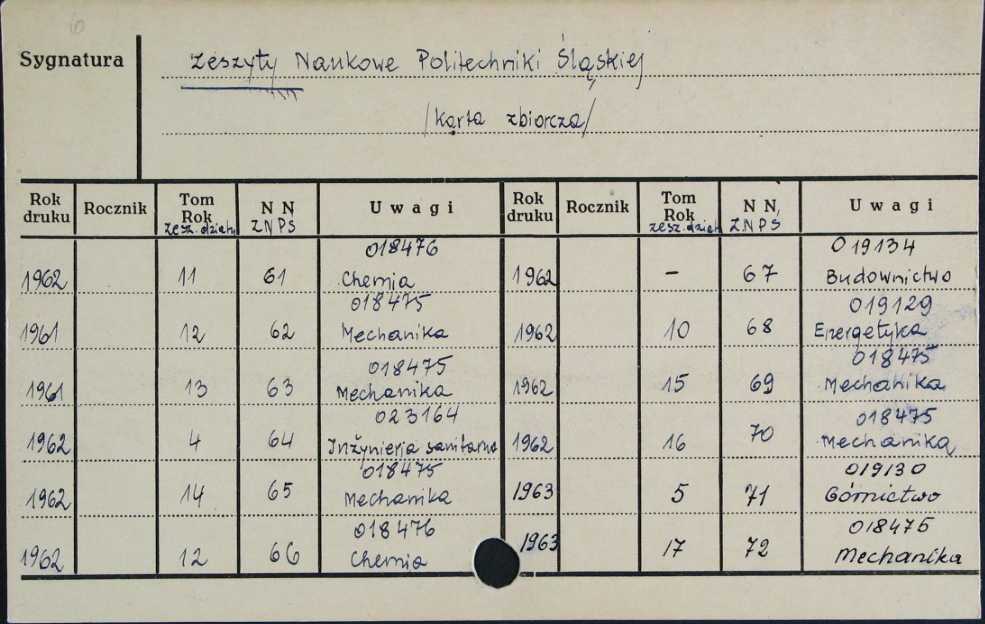 6
Sygnatura
Zeszyty Naukowe Politechniki Śląskiej
/karta zbiorcza/
Rok druku Rocznik Tom Rok zesz. działu N N ZNPS Uwagi Rok druku Rocznik Tom Rok zesz. dział N N ZNPS Uwagi
018476 019134
1962 11 61 Chemia 1962 - 67 Budownictwo
018475 019129
1961 12 62 Mechanika 1962 10 68 Energetyka
018475 018475
1961 13 63 Mechanika 1962 15 69 Mechanika
023164 018475
1962 4 64 Inżynieria sanitarna 1962 16 70 Mechanika
018475 019130
1962 14 65 Mechanika 1963 5 71 Górnictwo
018476 018475
1962 12 66 Chemia 1963 17 72 Mechanika